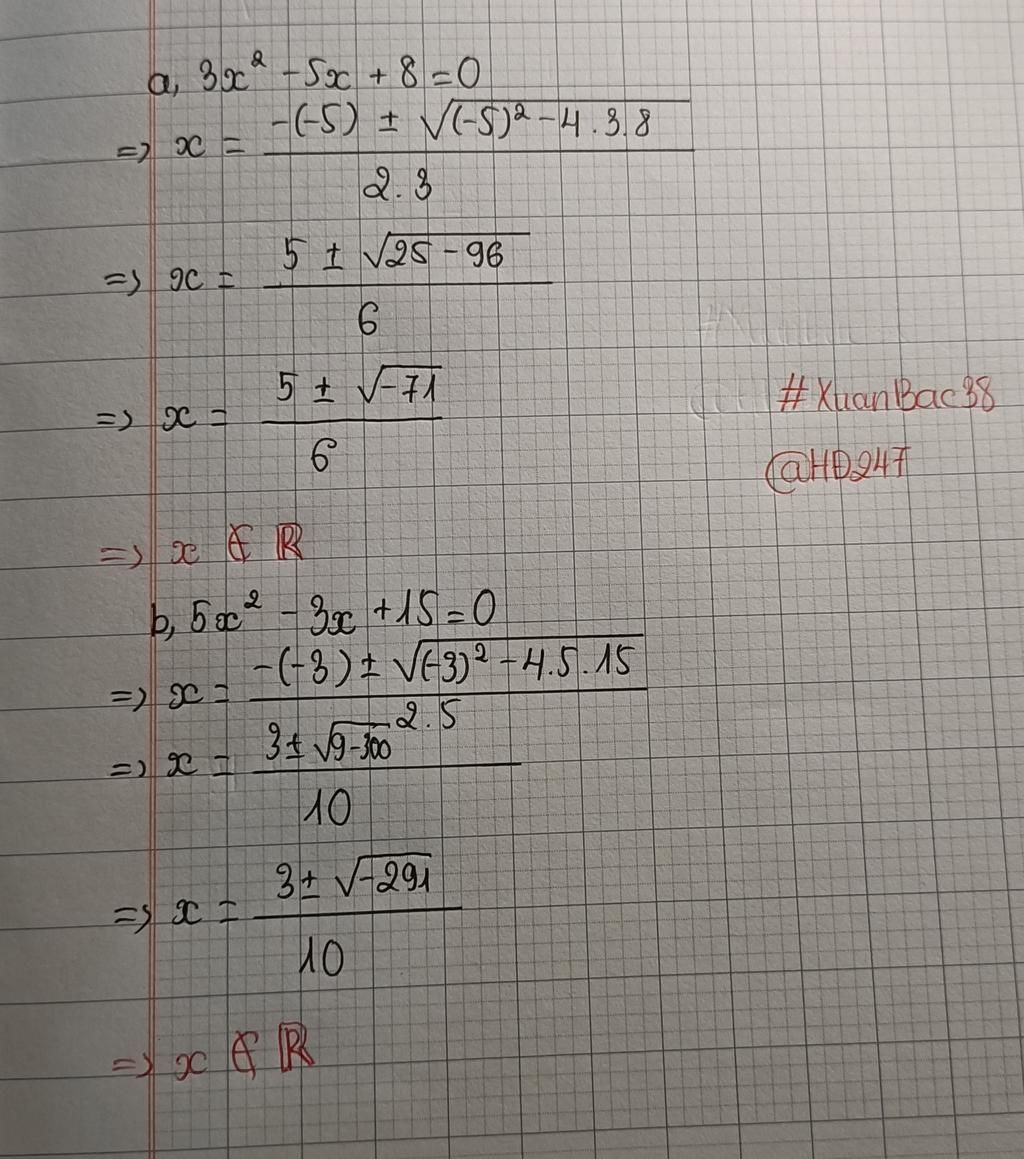 a, 3x² - 5x + 8 = 0
=> x = (-(-5) ± √((-5)² - 4.3.8)) / (2.3)
=> x = (5 ± √(25 - 96)) / 6
=> x = (5 ± √(-71)) / 6
#XuanBac38
@HD247
=> x ∉ ℝ
b, 5x² - 3x + 15 = 0
=> x = (-(-3) ± √((-3)² - 4.5.15)) / (2.5)
=> x = (3 ± √(9-300)) / 10
=> x = (3 ± √(-291)) / 10
=> x ∉ ℝ